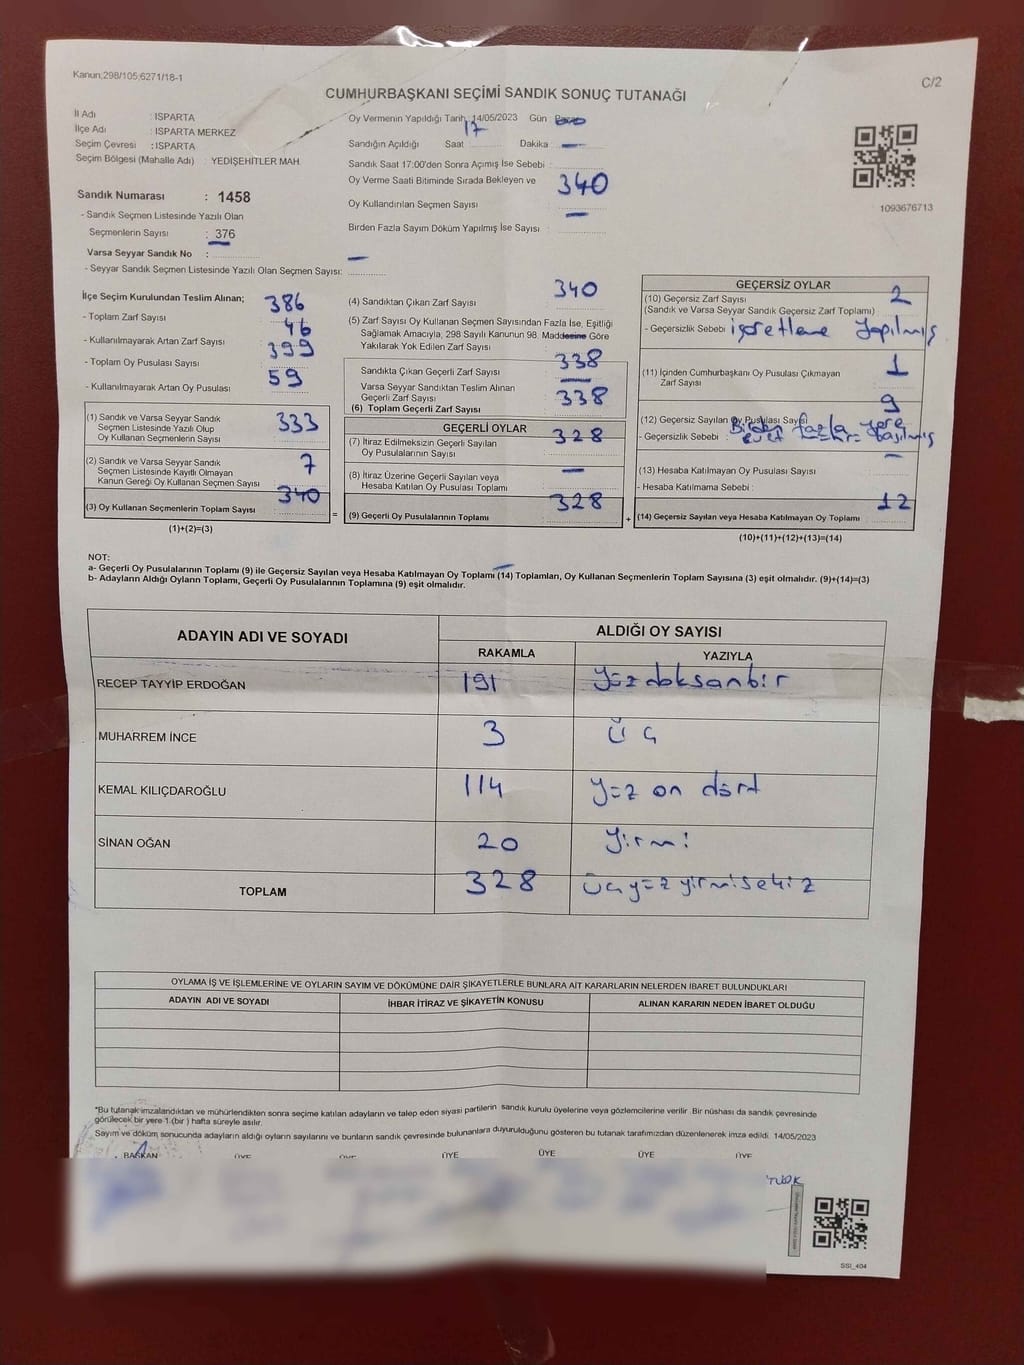 Kanun;298/105;6271/18-1
C/2
CUMHURBAŞKANI SEÇİMİ SANDIK SONUÇ TUTANAĞI
İl Adı : ISPARTA
İlçe Adı : ISPARTA MERKEZ
Seçim Çevresi : ISPARTA
Seçim Bölgesi (Mahalle Adı) : YEDİŞEHİTLER MAH.
Sandık Numarası : 1458
- Sandık Seçmen Listesinde Yazılı Olan
Seçmenlerin Sayısı : 376
Varsa Seyyar Sandık No :
- Seyyar Sandık Seçmen Listesinde Yazılı Olan Seçmen Sayısı:
Oy Vermenin Yapıldığı Tarih 14/05/2023 Gün
Sandığın Açıldığı Saat 17 Dakika —
Sandık Saat 17:00'den Sonra Açımış İse Sebebi :
Oy Verme Saati Bitiminde Sırada Bekleyen ve 340
Oy Kullandırılan Seçmen Sayısı —
Birden Fazla Sayım Döküm Yapılmış İse Sayısı :
1093676713
İlçe Seçim Kurulundan Teslim Alınan;
- Toplam Zarf Sayısı 386
- Kullanılmayarak Artan Zarf Sayısı 46
- Toplam Oy Pusulası Sayısı 399
- Kullanılmayarak Artan Oy Pusulası 59
(1) Sandık ve Varsa Seyyar Sandık
Seçmen Listesinde Yazılı Olup
Oy Kullanan Seçmenlerin Sayısı 333
(2) Sandık ve Varsa Seyyar Sandık
Seçmen Listesinde Kayıtlı Olmayan
Kanun Gereği Oy Kullanan Seçmen Sayısı 7
(3) Oy Kullanan Seçmenlerin Toplam Sayısı 340
(1)+(2)=(3)
=
(4) Sandıktan Çıkan Zarf Sayısı 340
(5) Zarf Sayısı Oy Kullanan Seçmen Sayısından Fazla İse, Eşitliği
Sağlamak Amacıyla, 298 Sayılı Kanunun 98. Maddesine Göre
Yakılarak Yok Edilen Zarf Sayısı
Sandıkta Çıkan Geçerli Zarf Sayısı 338
Varsa Seyyar Sandıktan Teslim Alınan
Geçerli Zarf Sayısı —
(6) Toplam Geçerli Zarf Sayısı 338
GEÇERLİ OYLAR
(7) İtiraz Edilmeksizin Geçerli Sayılan
Oy Pusulalarının Sayısı 328
(8) İtiraz Üzerine Geçerli Sayılan veya
Hesaba Katılan Oy Pusulası Toplamı —
(9) Geçerli Oy Pusulalarının Toplamı 328
+
GEÇERSİZ OYLAR
(10) Geçersiz Zarf Sayısı 2
(Sandık ve Varsa Seyyar Sandık Geçersiz Zarf Toplamı)
- Geçersizlik Sebebi : işaretleme yapılmış
(11) İçinden Cumhurbaşkanı Oy Pusulası Çıkmayan
Zarf Sayısı 1
(12) Geçersiz Sayılan Oy Pusulası Sayısı 9
- Geçersizlik Sebebi : Birden fazla yere
evet basılmış
(13) Hesaba Katılmayan Oy Pusulası Sayısı —
- Hesaba Katılmama Sebebi :
(14) Geçersiz Sayılan veya Hesaba Katılmayan Oy Toplamı 12
(10)+(11)+(12)+(13)=(14)
NOT:
a- Geçerli Oy Pusulalarının Toplamı (9) ile Geçersiz Sayılan veya Hesaba Katılmayan Oy Toplamı (14) Toplamları, Oy Kullanan Seçmenlerin Toplam Sayısına (3) eşit olmalıdır. (9)+(14)=(3)
b- Adayların Aldığı Oyların Toplamı, Geçerli Oy Pusulalarının Toplamına (9) eşit olmalıdır.
ADAYIN ADI VE SOYADI ALDIĞI OY SAYISI
RAKAMLA YAZIYLA
RECEP TAYYİP ERDOĞAN 191 yüzdoksanbir
MUHARREM İNCE 3 üç
KEMAL KILIÇDAROĞLU 114 yüz on dört
SİNAN OĞAN 20 yirmi
TOPLAM 328 üçyüz yirmisekiz
OYLAMA İŞ VE İŞLEMLERİNE VE OYLARIN SAYIM VE DÖKÜMÜNE DAİR ŞİKAYETLERLE BUNLARA AİT KARARLARIN NELERDEN İBARET BULUNDUKLARI
ADAYIN ADI VE SOYADI İHBAR İTİRAZ VE ŞİKAYETİN KONUSU ALINAN KARARIN NEDEN İBARET OLDUĞU
*Bu tutanak imzalandıktan ve mühürlendikten sonra seçime katılan adayların ve talep eden siyasi partilerin sandık kurulu üyelerine veya gözlemcilerine verilir. Bir nüshası da sandık çevresinde
görülecek bir yere 1 (bir) hafta süreyle asılır.
Sayım ve döküm sonucunda adayların aldığı oyların sayılarını ve bunların sandık çevresinde bulunanlara duyurulduğunu gösteren bu tutanak tarafımızdan düzenlenerek imza edildi. 14/05/2023
BAŞKAN ÜYE ÜYE ÜYE ÜYE ÜYE ÜYE
SSİ_404